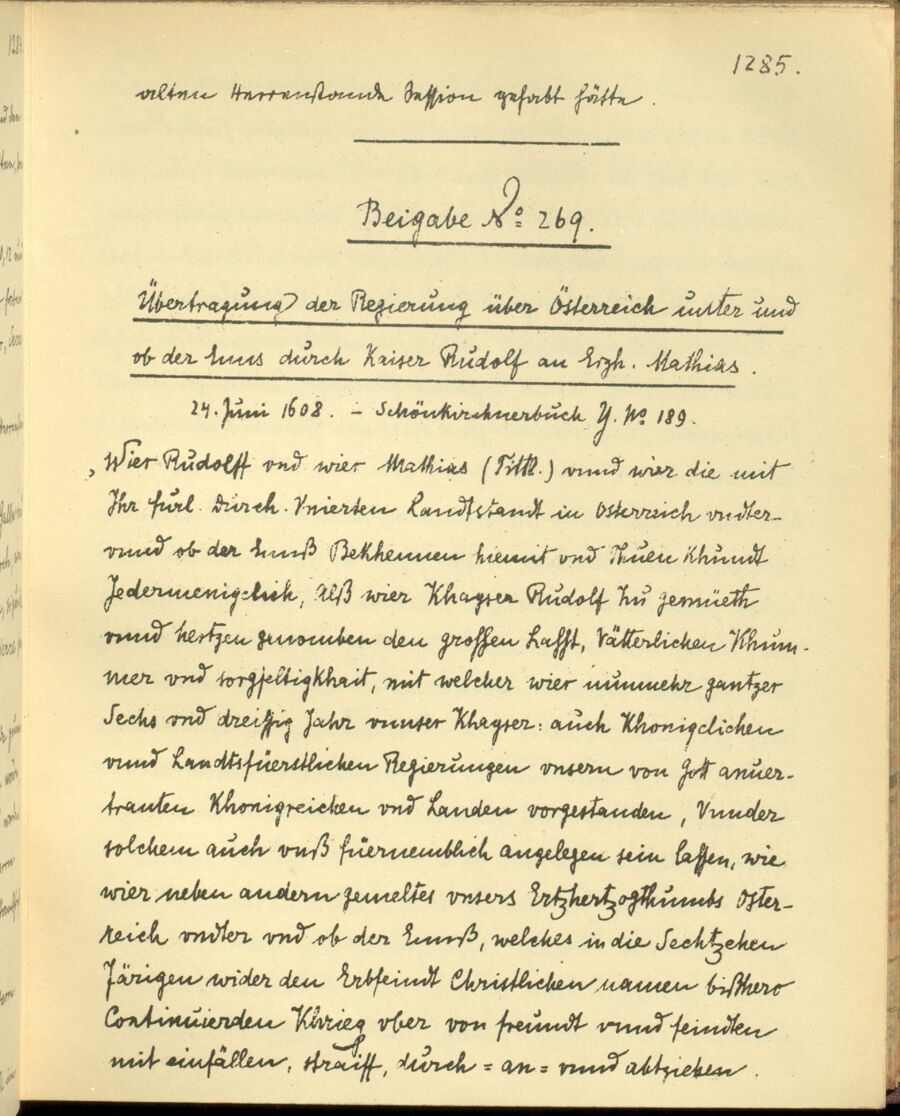 1285.
alten Herrenstande Session gehabt hätte.
Beigabe No 269.
Übertragung der Regierung über Österreich unter und
ob der Enns durch Kaiser Rudolf an Erzh. Mathias.
24. Juni 1608. – Schönkirchnerbuch Y. No 189.
„Wier Rudolff vnd wier Mathias (Titl.) vnnd wier die mit
Ihr fürl. Durch. Vnierten Landtstandt in Osterreich vndter-
vnnd ob der Ennß Bekhennen hiemit vnd Thuen Khundt
Jedermenigclich, Alß wier Khayser Rudolf zu gemüeth
vnnd hertzen genomben den grossen Lasst, Vätterlichen Khum-
mer vnd sorgfeltigkhait, mit welcher wier nunmehr gantzer
Sechs vnd dreißig Jahr vnnser Khayser: auch Khonigclichen
vnnd Landtsfüerstlichen Regierungen vnsern von Gott anuer-
trauten Khonigreichen vnd Landen vorgestanden, Vnnder
solchem auch vnß füernemblich angelegen sein lassen, wie
wier neben andern gemeltes vnsers Ertzhertzogthumbs Oster-
reich vndter vnd ob der Ennß, welches in die Sechtzehen
Järigen wider den Erbfeindt Christlichen namen bißhero
Continuierden Khrieg vber von freundt vnnd feindten
mit einfällen, straiff, durch = an = vnnd abtziehen.